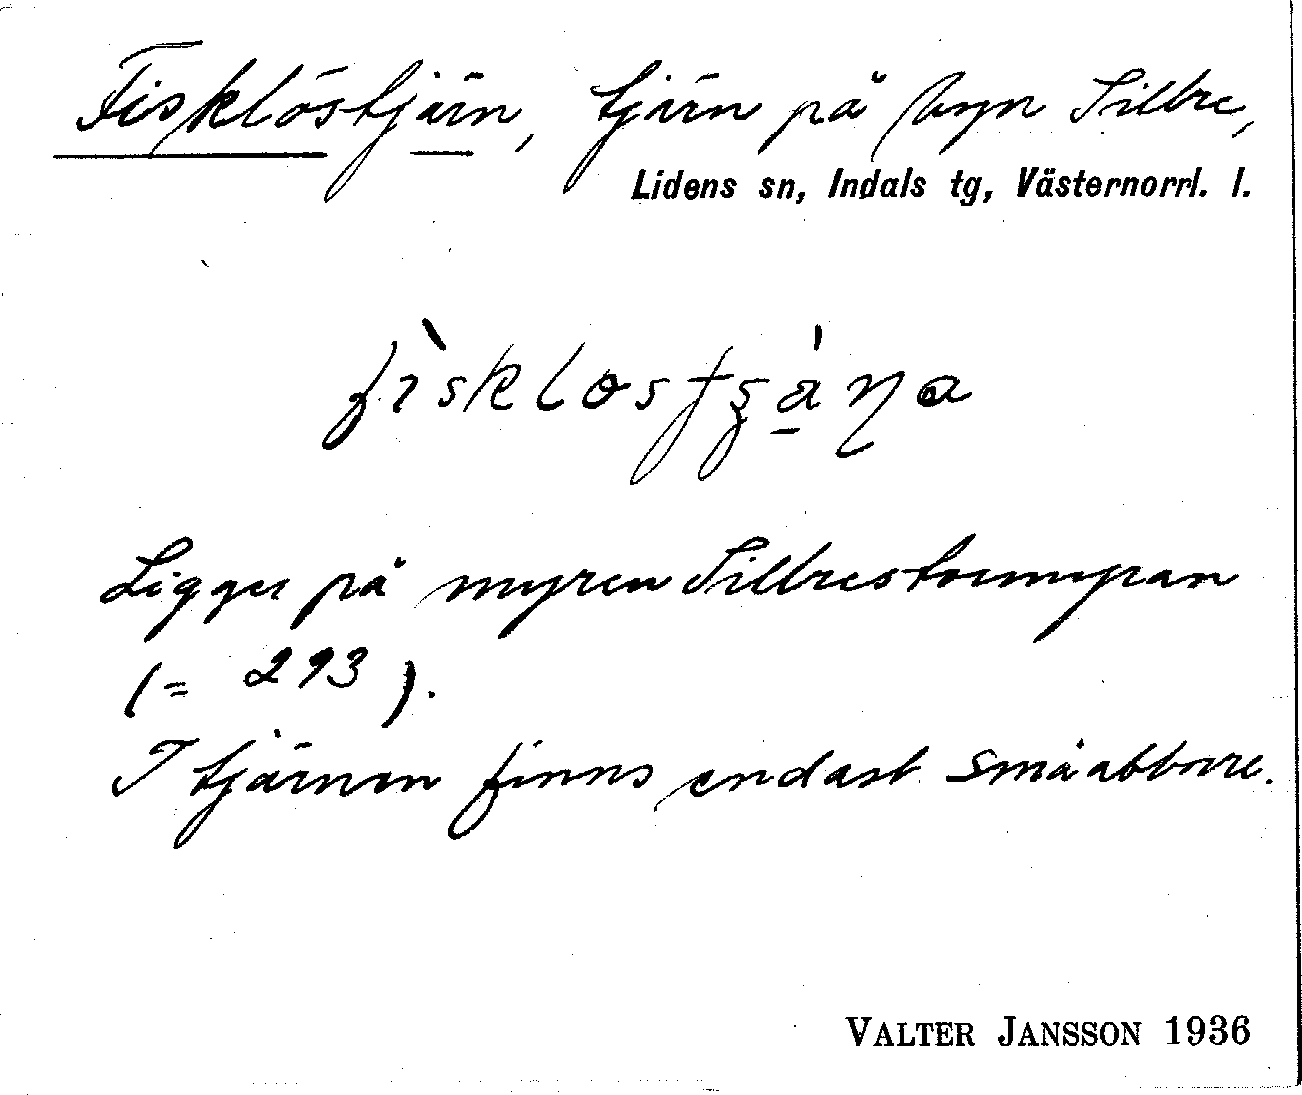 Fisklöstjärn, tjärn på byn Sillre,
Lidens sn, Indals tg, Västernorrl. l.
Ligger på myren
(= 293).
I tjärnen finns endast småabborre.
VALTER JANSSON 1936